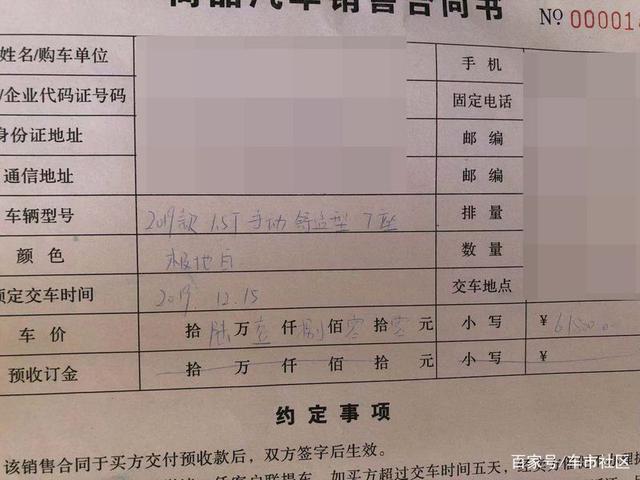 商品汽车销售合同书 № 000014
姓名/购车单位 手机
/企业代码证号码 固定电话
身份证地址 邮编
通信地址 邮编
车辆型号 2019款 1.5T 手动 舒适型 7座 排量
颜色 极地白 数量
预定交车时间 2019 12.15 交车地点
车价 拾 陆 万 壹 仟 捌 佰 零 拾 零 元 小写 ¥ 61800.00
预收订金 拾 万 仟 佰 拾 元 小写 ¥
约定事项
该销售合同于买方交付预收款后，双方签字后生效。
如买方超过交车时间五天，
百家号/车市社区